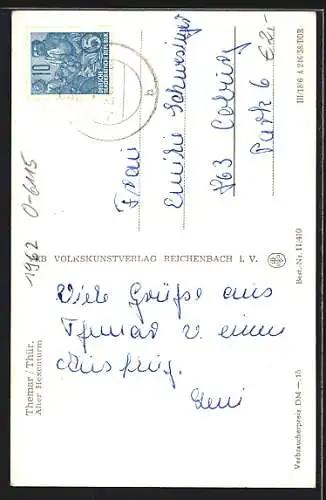 Themar / Thür.
Alter Hexenturm
Viele Grüße aus
Themar v. einem
Ausflug.
Leni
VEB VOLKSKUNSTVERLAG REICHENBACH i. V.
Frau
Emilie
863 Coburg
Park 6
€2,-
1962 O-6115
10
DEUTSCHE
DEMOKRATISCHE REPUBLIK
b
III/18/6 A 216/58/DDR
Best.-Nr. 11/410
Verbraucherpreis DM —.15